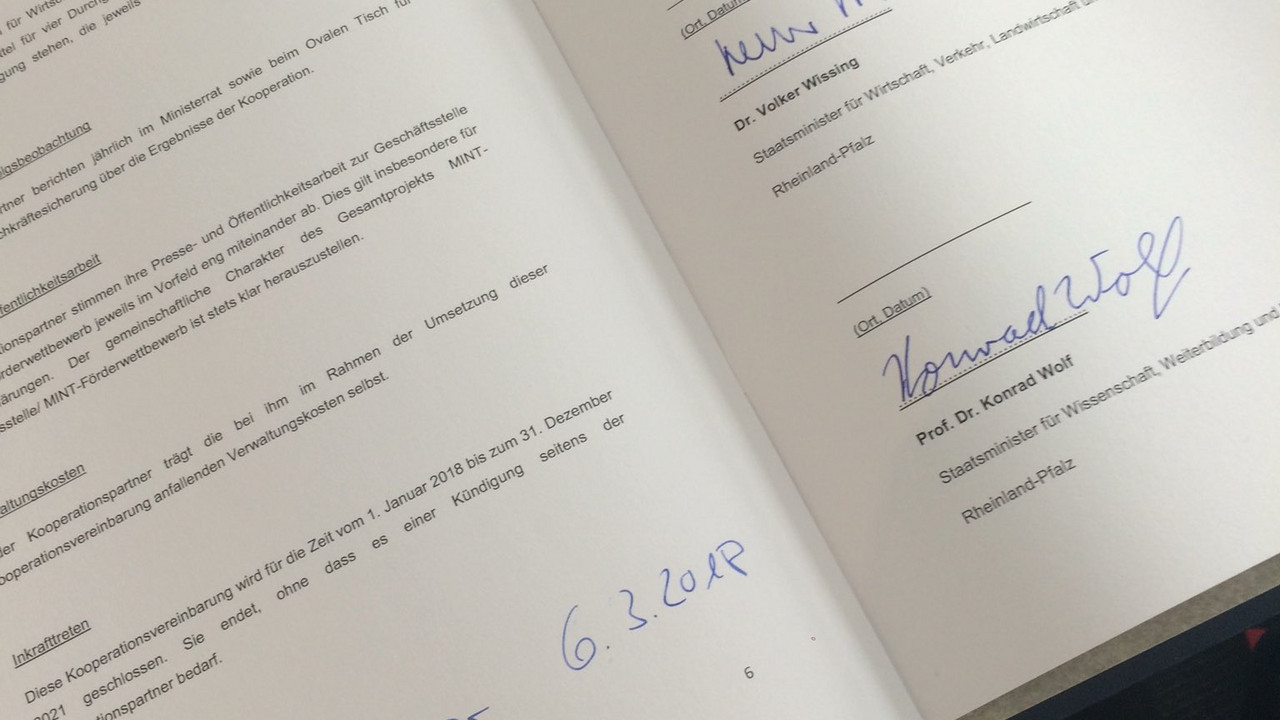 für Wirtsc
tel für vier Durchg
gung stehen, die jeweils
lgsbeobachtung
rtner berichten jährlich im Ministerrat sowie beim Ovalen Tisch für
chkräftesicherung über die Ergebnisse der Kooperation.
fentlichkeitsarbeit
tionspartner stimmen ihre Presse- und Öffentlichkeitsarbeit zur Geschäftsstelle
rderwettbewerb jeweils im Vorfeld eng miteinander ab. Dies gilt insbesondere für
ärungen. Der gemeinschaftliche Charakter des Gesamtprojekts MINT-
sstelle/ MINT-Förderwettbewerb ist stets klar herauszustellen.
altungskosten
der Kooperationspartner trägt die bei ihm im Rahmen der Umsetzung dieser
ooperationsvereinbarung anfallenden Verwaltungskosten selbst.
Inkrafttreten
Diese Kooperationsvereinbarung wird für die Zeit vom 1. Januar 2018 bis zum 31. Dezember
2021 geschlossen. Sie endet, ohne dass es einer Kündigung seitens der
tionspartner bedarf.
6.3.2018
6
(Ort, Datum
Dr. Volker Wissing
Staatsminister für Wirtschaft, Verkehr, Landwirtschaft u
Rheinland-Pfalz
(Ort, Datum)
Konrad Wolf
Prof. Dr. Konrad Wolf
Staatsminister für Wissenschaft, Weiterbildung und
Rheinland-Pfalz